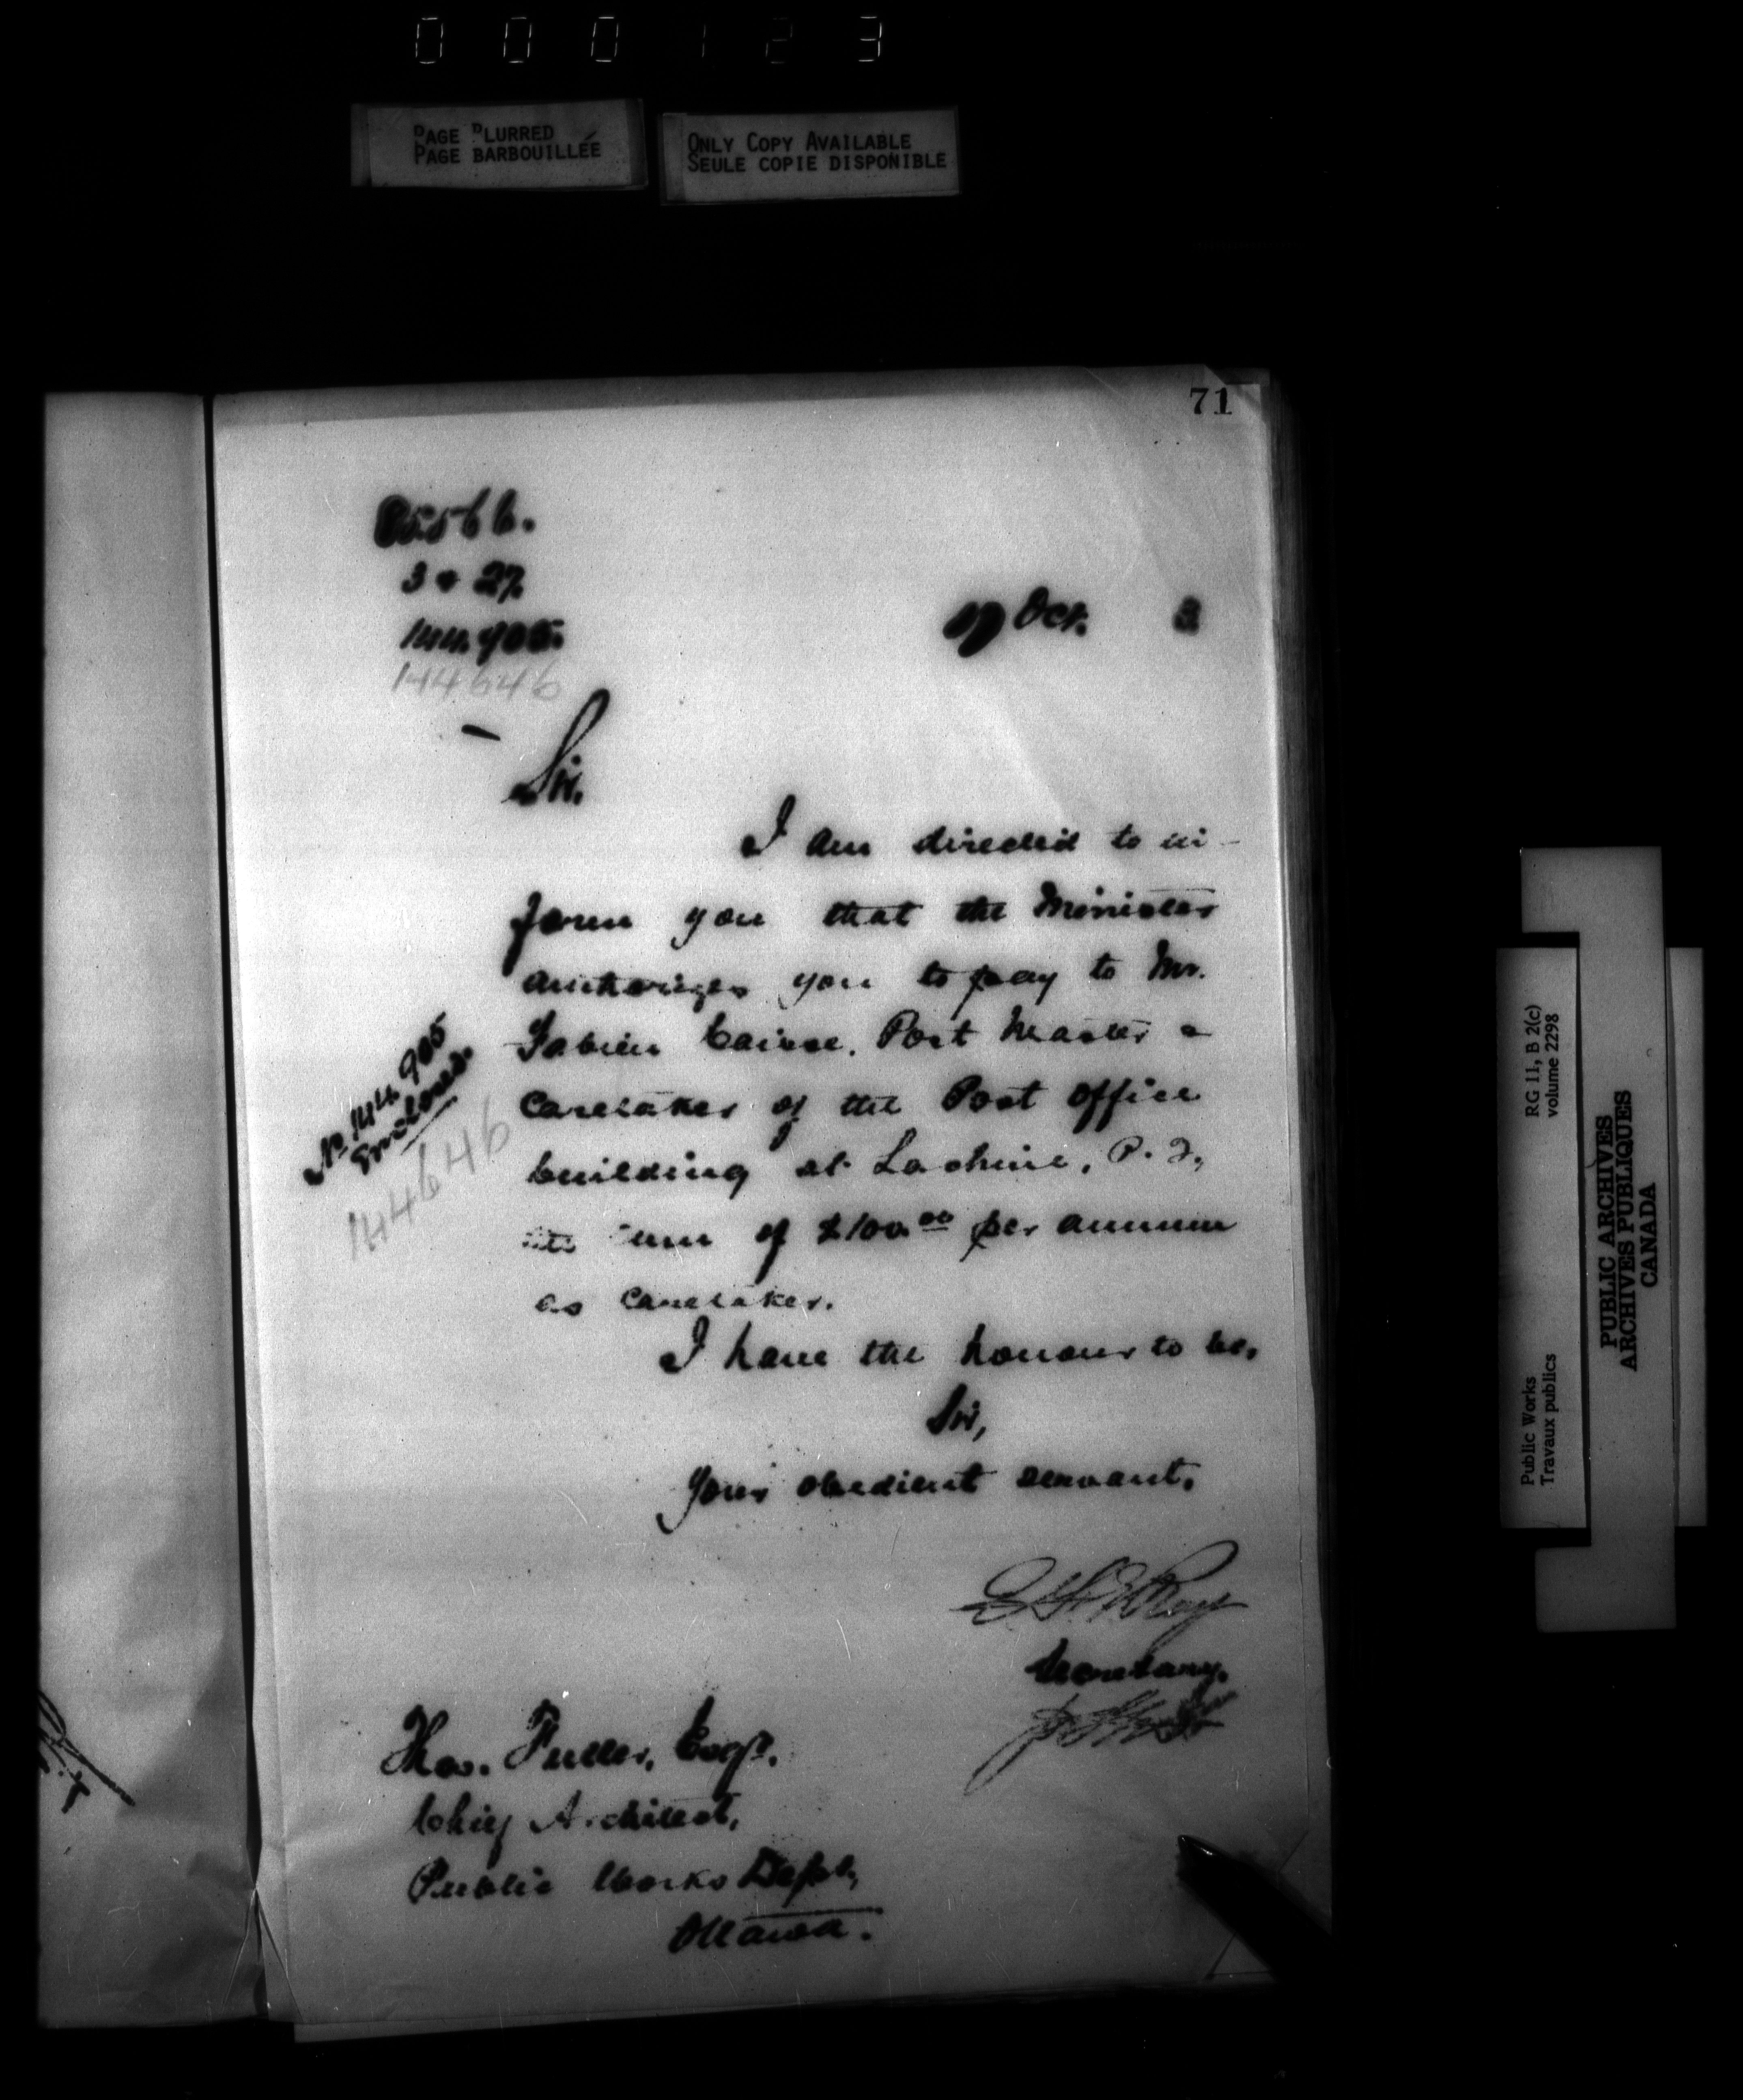 000123
PAGE BLURRED
PAGE BARBOUILLÉE
ONLY COPY AVAILABLE
SEULE COPIE DISPONIBLE
71
3 & 27.
144.905.
144646
Oct. 3
Sir.
I am directed to in-
form you that the Minister
authorizes you to pay to Mr.
Post Master &
Caretaker of the Post Office
building at Lachine, P. Q.,
the sum of $100.00 per annum
as Caretaker.
No 144 905
Enclosed.
144646
I have the honour to be,
Sir,
Your obedient servant,
Roy
Secretary.
Thos. Fuller, Esqr.
Chief Architect,
Public Works Dept,
Ottawa.
Public Works
Travaux publics
RG 11, B 2(c)
volume 2298
PUBLIC ARCHIVES
ARCHIVES PUBLIQUES
CANADA